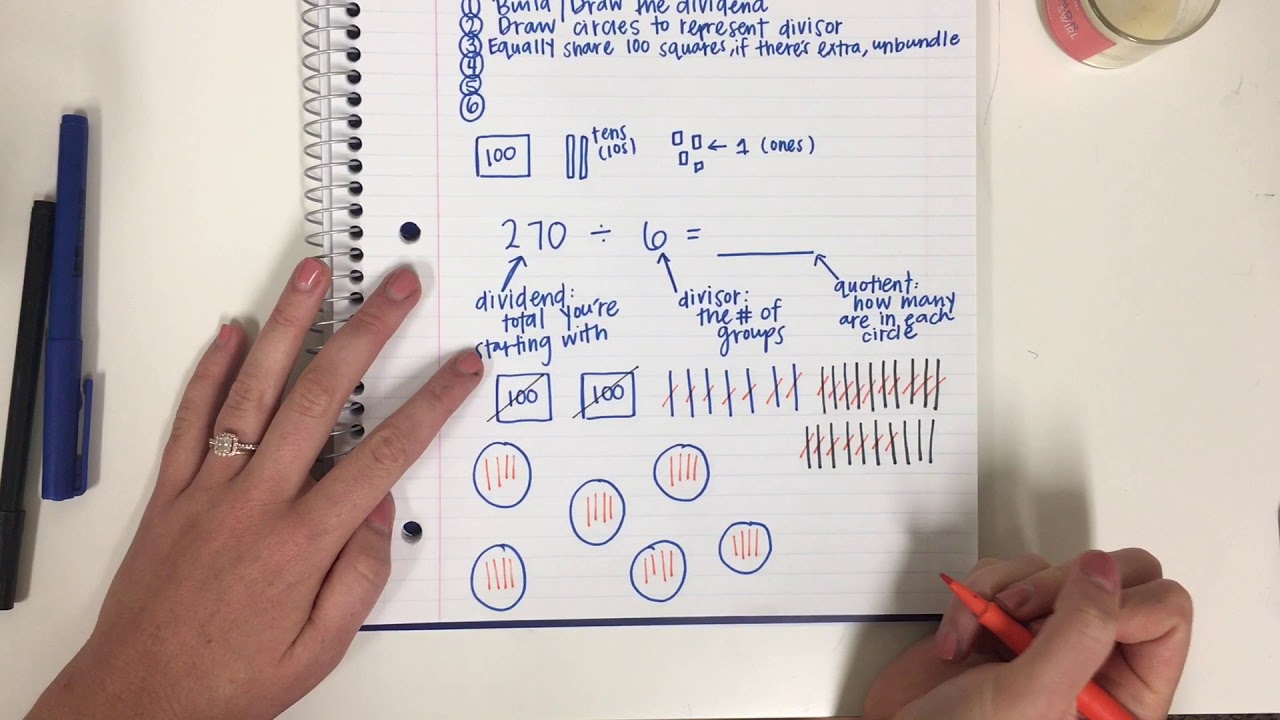 ① Build / Draw the dividend
② Draw circles to represent divisor
③ Equally share 100 squares, if there's extra, unbundle
④
⑤
⑥
100
tens
(10s)
← 1 (ones)
270 ÷ 6 = ______
dividend:
total you're
starting with
divisor:
the # of
groups
quotient:
how many
are in each
circle
100 100